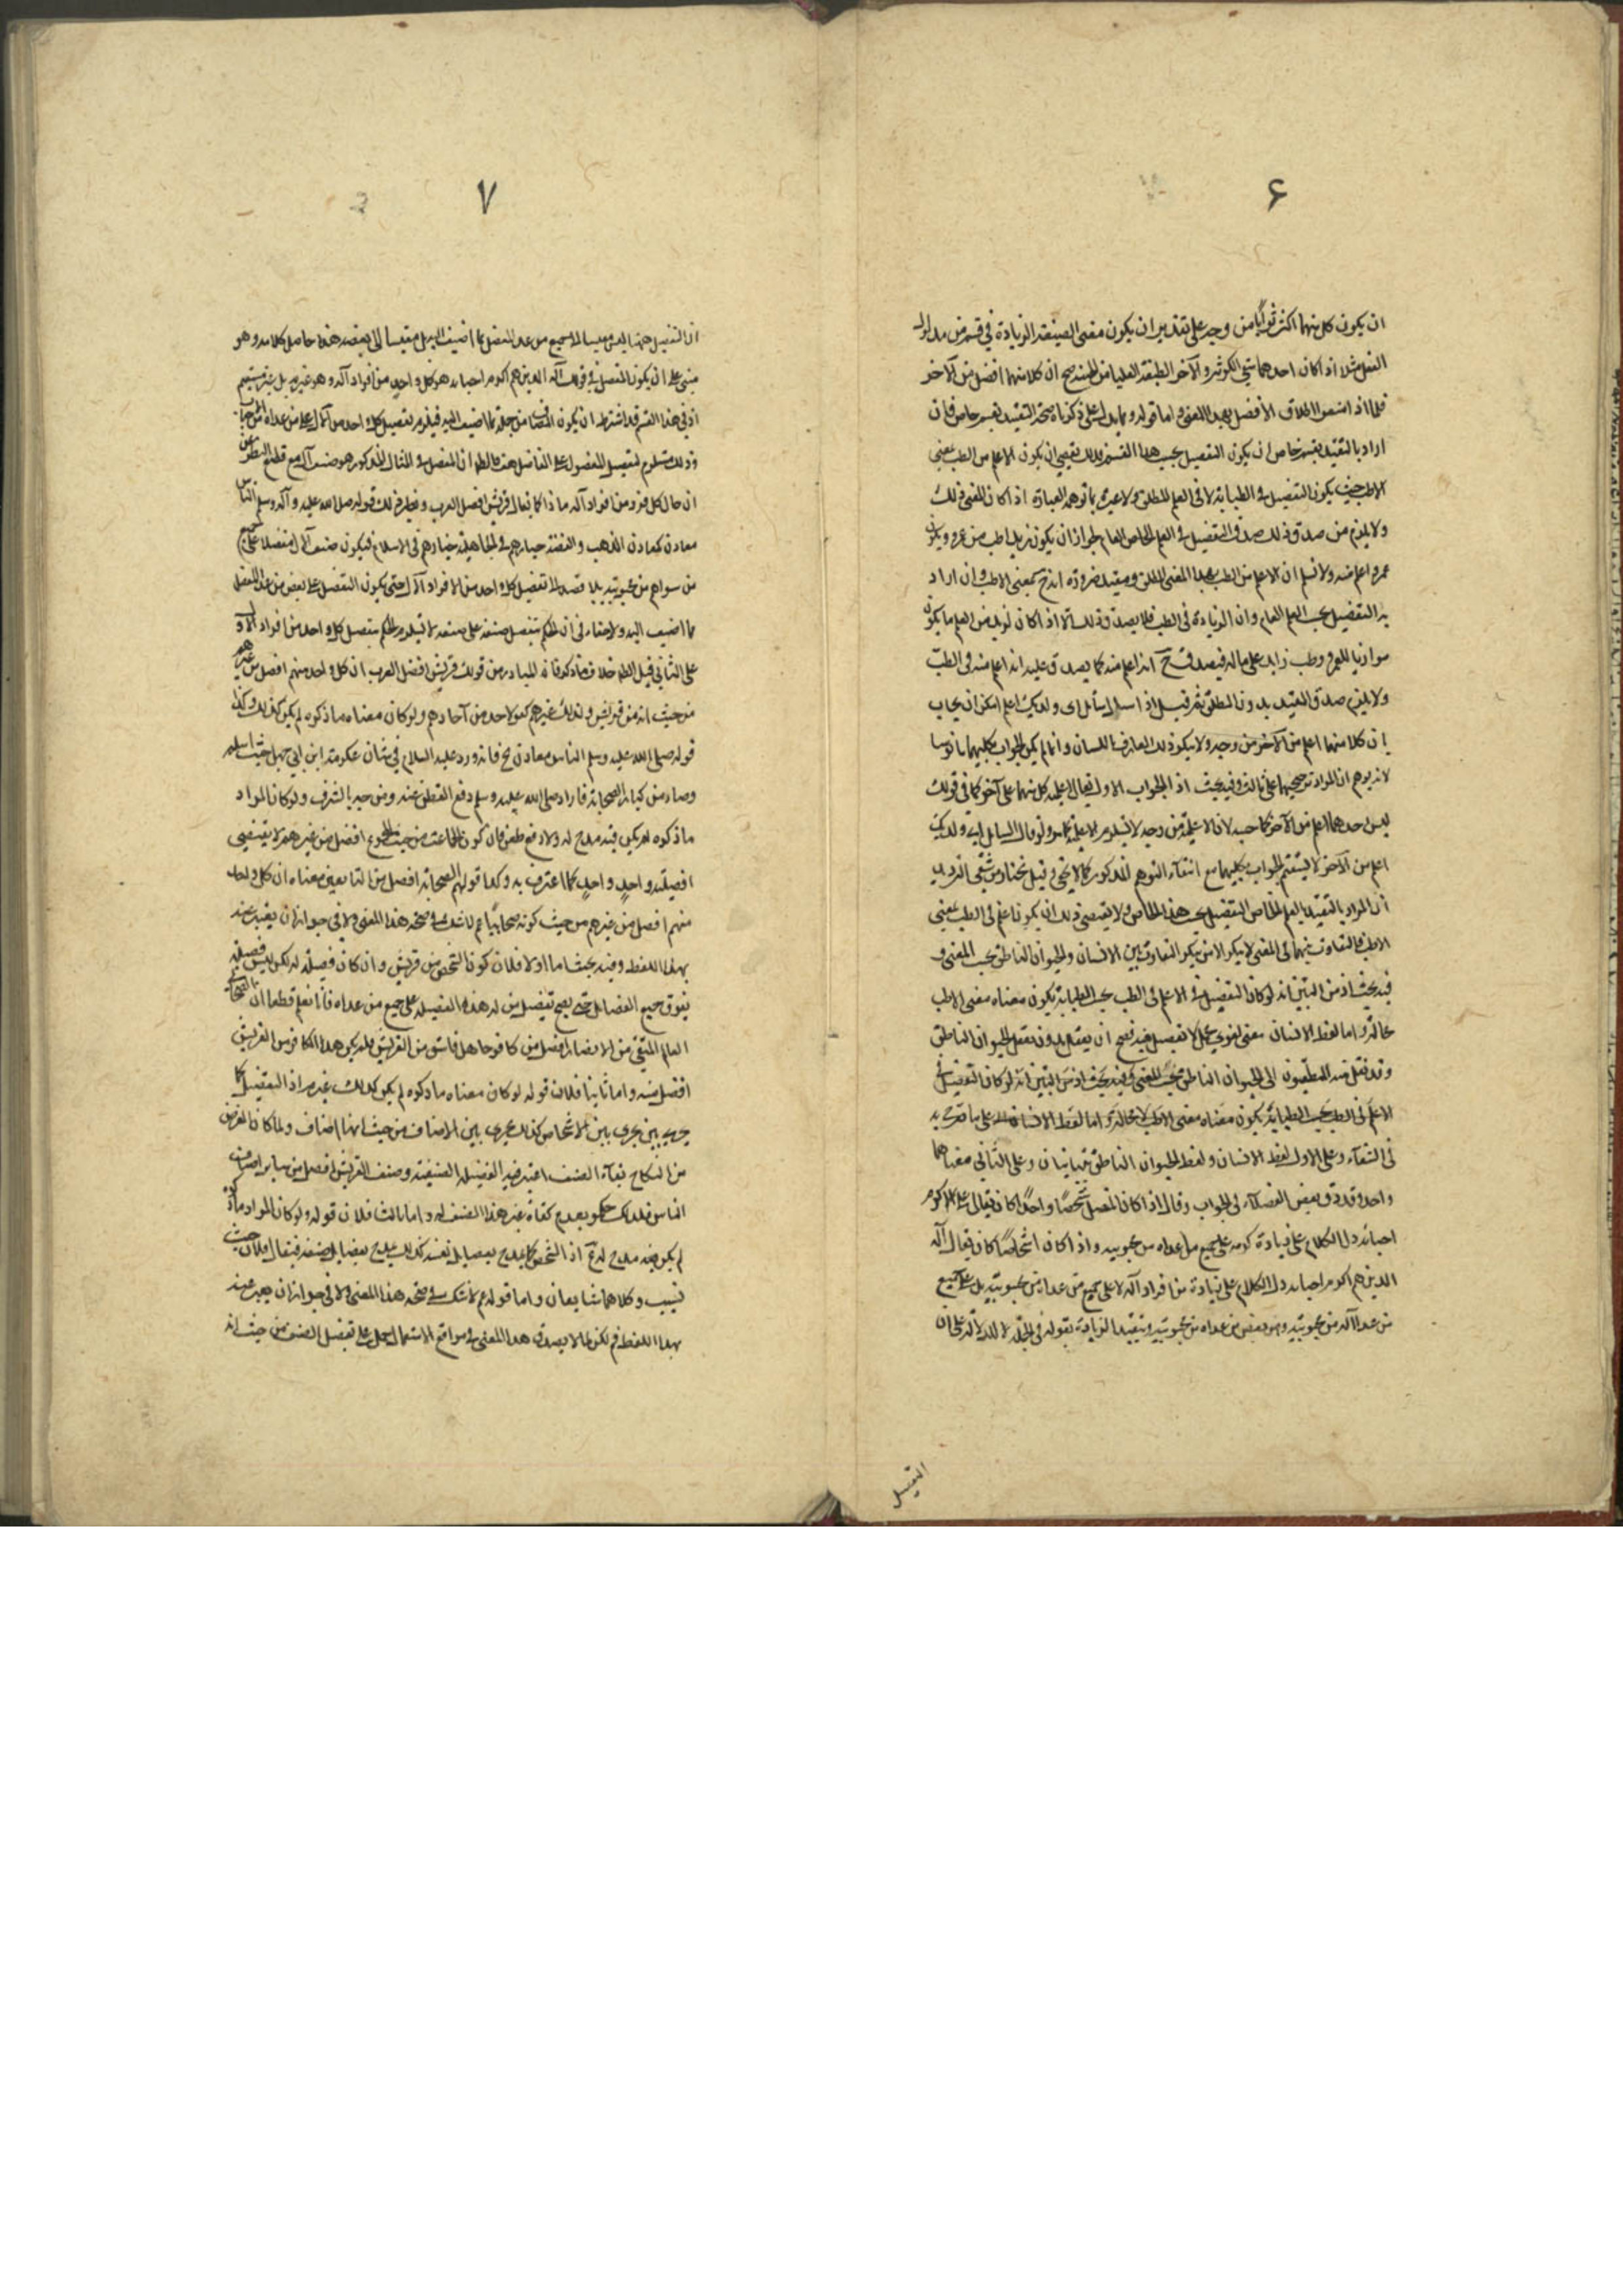 ۶
ان يكون كل منهما اكثر ثوابا من وجه على تقدير ان يكون مقتضى الصيغة الزيادة في قسم من مدلول
الفعل مثلا اذا كان احدهما سقي الكوثر والآخر الطبقة العليا من الجنة صح ان كلا منهما افضل من الآخر
فلما اذا امتنعوا اطلاق الأفضل بهذا المعنى واما قوله ومما يدل على ما ذكرناه صحة التقييد بقسم خاص فان
اراد بالتقييد بقسم خاص ان يكون التفضيل بحسب هذا القسم فذلك يقتضي ان يكون الاعلم من الطب بمعنى
الاطب حيث يكون التفضيل في الطبابة لا في العلم المطلق ولا عبرة بما توهمه العبارة اذا كان المعنى ذلك
ولا يلزم من صدق ذلك صدق التفضيل في العلم الخاص العام لجواز ان يكون زيد اطب من عمرو ويكون
عمرو اعلم منه ولا نسلم ان الاعلم من الطب بهذا المعنى المطلق ومقيد ضرورة انه ح بمعنى الاطب وان اراد
به التفضيل بحسب العلم العام وان الزيادة في الطب فلا يصدق ذلك الا اذا كان لزيد من العلم ما يكون
موازيا لعمرو وطب زايد على ماله فيصدق ح انه اعلم منه كما يصدق عليه انه اعلم منه في الطب
ولا يلزم صدق المقيد بدون المطلق ثم قيل اذا سئل السائل اى ولديك اعلم امكن ان يجاب
بان كلا منهما اعلم من الآخر من وجه ولا ينكر ذلك العارف باللسان وانما لم يكن الجواب بكليهما مانوسا
لانه يوهم ان المراد ترجيحهما على ثالث وفيه بحث اذ الجواب الاول يقال لاعلمية كل منهما على آخر كما في قولك
ليس احدهما اعلم من الآخر كما حسبه لان الاعلمية من وجه لا تستلزم الاعلمية كما مر ولو قال السائل اى ولديك
اعلم من الآخر لا يستقيم الجواب بكليهما مع انتفاء التوهم المذكور كما لا يخفى قيل نختار من شقي الترديد
أن المراد بالتقييد بالعلم الخاص التفضيل بحسب هذا الخاص ولا يقتضي ذلك ان يكون اعلم في الطب بمعنى
الاطب فالتفاوت بينهما في المعنى لا ينكر الا من ينكر التفاوت بين الانسان والحيوان الناطق بحسب المعنى
فيه بحث اذ من البين انه لو كان التفضيل في الاعلم في الطب بحسب الطبابة يكون معناه معنى الاطب
لا محالة واما لفظ الانسان معنى لغوي مجمل لا تفصيل فيه فصح ان يتعقل بدون تعقل الحيوان الناطق
وقد نقل عنه المنطقيون الى الحيوان الناطق بحسب المعنى وفيه بحث اذ من البين انه لو كان التفضيل في
الاعلم في الطب بحسب الطبابة يكون معناه معنى الاطب لا محالة واما لفظ الانسان على ما قرره به
في الشفاء وعلى الاول لفظ الانسان ولفظ الحيوان الناطق متباينان وعلى الثاني معناهما
واحد وقد دقق بعض الفضلاء في الجواب وقال اذا كان المفضل شخصا واحدا كان يقال على اكرم
احبائه دل الكلام على زيادة كرمه على جميع من عداه من محبوبيه واذا كان اشخاصا كان يقال آله
الذين هم اكرم احبائه دل الكلام على زيادة من افراد آله لا على جميع من عداه من محبوبيه بل على جميع
من عدا آله من محبوبيه ومن بعض من عداه من محبوبيه وتقييد الزيادة بقوله في الجملة لا للدلالة على ان
التفضيل
۷
ان التفضيل ههنا ليس مقيسا الى جميع من عدا المفضل مما اضيف اليه بل مقيسا الى بعضه هذا حاصل كلامه وهو
مبني على ان يكون المفضل في قولك آله الذين هم اكرم احبابه هو كل واحد من افراد آله وهو غير مسلم بل غير مستقيم
اذ في هذا القسم قد اشترط ان يكون المضاف من جملة ما اضيف اليه فيلزم تفضيل كل واحد من آله على من عداه
وذلك مستلزم لتفضيل المفضول على الفاضل هف فالظاهر ان المفضل في المثال المذكور هو صنف آله مع قطع النظر عن
ان حال كل فرد من افراد آله ماذا كما يقال قريش افضل العرب ونظير ذلك قوله صلى الله عليه وآله وسلم الناس
معادن كمعادن الذهب والفضة خيارهم في الجاهلية خيارهم في الاسلام فيكون صنف آله مفضلا على جميع
من سواهم من محبوبيه بلا قصد الى تفضيل كل واحد من الافراد الآل حتى يكون التفضيل على بعض من عدا المفضل
مما اضيف اليه ولا خفاء في ان الحكم بتفضيل صنف على صنف لا يستلزم الحكم بتفضيل كل واحد من افراد الاول
على الثاني قيل الظاهر خلاف ما ذكر فانه المتبادر من قولك قريش افضل العرب ان كل واحد منهم افضل من غيرهم
من حيث انه من قريش ولذلك غيرهم كفو لاحد من آحادهم ولو كان معناه ما ذكره لم يكن كذلك وكذا
قوله صلى الله عليه وسلم الناس معادن الخ فانه ورد عليه السلام في شان عكرمة ابن ابي جهل حيث اسلم
وصار من كبار الصحابة فاراد صلى الله عليه وسلم دفع الطعن عنه ومدحه بالشرف ولو كان المراد
ما ذكره لم يكن فيه مدح له ولا دفع طعن فان كون الجماعة من حيث المجموع افضل من غيرهم لا يقتضي
افضلية واحد واحد كما اعترف به وكذا قولهم الصحابة افضل من التابعين معناه ان كل واحد
منهم افضل من غيرهم من حيث كونه صحابيا نعم لا شك في صحة هذا المعنى ولا في جواز ان يعبر عنه
بهذا اللفظ وفيه بحث اما اولا فلان كون الشخص من قريش وان كان فضيلة له لكن ليس فضيلة
يفوق جميع الفضائل حتى يصح تفضيل من له هذه الفضيلة على جميع من عداه فانا نعلم قطعا ان الشجاع
العالم المتقي من الانصار افضل من كافر جاهل فاسق من القريش فلم يكن هذا الكافر من القريش
افضل منه واما ثانيا فلان قوله لو كان معناه ما ذكره لم يكن كذلك غير مسلم اذ التفضيل كما
يجري بين يجرى بين الاشخاص كذلك يجرى بين الاصناف من حيث انها اصناف ولما كان الغرض
من النكاح بقاء الصنف اعتبر فيه الفضيلة الصنفية وصنف القريش افضل من ساير اصناف
الناس فلذلك حكموا بعدم كفاءة غير هذا الصنف له واما ثالثا فلان قوله ولو كان المراد ما ذكره
لم يكن فيه مدح له مم اذ الشخص كما يمدح بفضايل نفسه كذلك يمدح بفضايل صنفه فيقال فلان حسيب
نسيب وكلاهما شايعان واما قوله نعم لا شك في صحة هذا المعنى ولا في جواز ان يعبر عنه
بهذا اللفظ مم لكن لما لا يصدق هذا المعنى في مواقع الاستعمال حمل على تفضيل الصنف من حيث انه